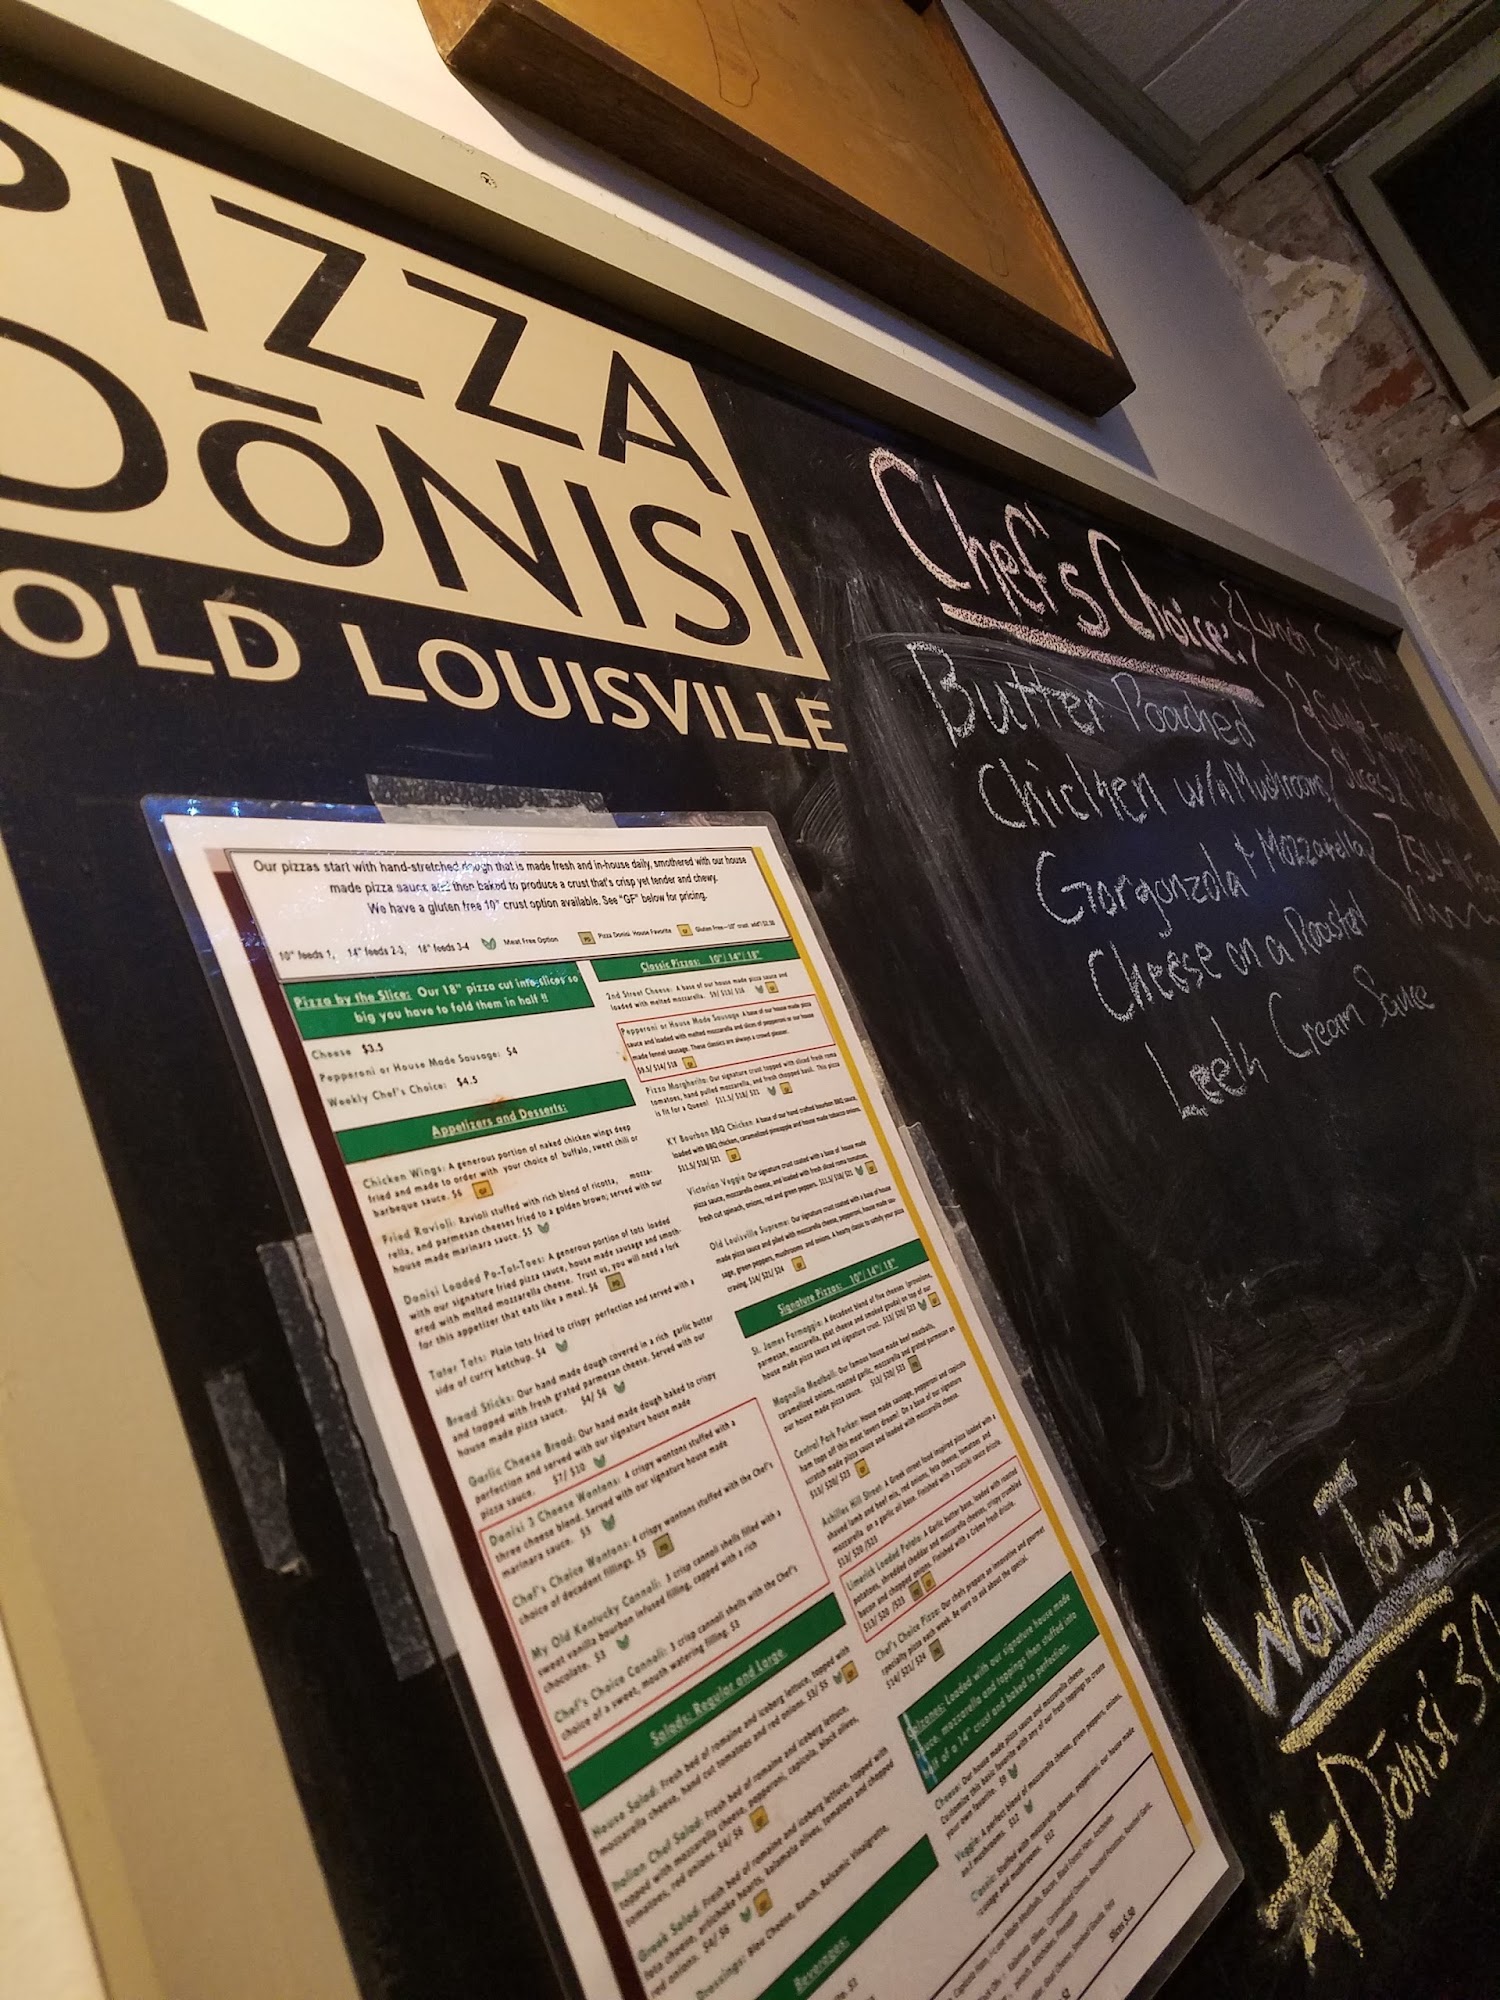 PIZZA
DŌNISI
OLD LOUISVILLE
Chef's Choice:
Butter Poached
Chicken w/ Mushrooms
Gorgonzola + Mozzarella
Cheese on a Roasted
Leek Cream Sauce
Lunch
2 Single topping
slices
Won Tons:
Dōnisi 3
Our pizzas start with hand-stretched dough that is made fresh and in-house daily, smothered with our house
made pizza sauce and then baked to produce a crust that's crisp yet tender and chewy.
We have a gluten free 10" crust option available. See "GF" below for pricing.
10" feeds 1, 14" feeds 2-3, 18" feeds 3-4 Meat Free Option Pizza Donisi House Favorite Gluten Free—10" crust
Pizza by the Slice: Our 18" pizza cut into slices so
big you have to fold them in half !!
Cheese $3.5
Pepperoni or House Made Sausage: $4
Weekly Chef's Choice: $4.5
Appetizers and Desserts:
Chicken Wings: A generous portion of naked chicken wings deep
fried and made to order with your choice of buffalo, sweet chili or
barbeque sauce. $6
Fried Ravioli: Ravioli stuffed with rich blend of ricotta, mozza-
rella, and parmesan cheeses fried to a golden brown; served with our
house made marinara sauce. $5
Donisi Loaded Po-Tot-Toes: A generous portion of tots loaded
with our signature fried pizza sauce, house made sausage and smoth-
ered with melted mozzarella cheese. Trust us, you will need a fork
for this appetizer that eats like a meal. $6
Tater Tots: Plain tots fried to crispy perfection and served with a
side of curry ketchup. $4
Bread Sticks: Our hand made dough covered in a rich garlic butter
and topped with fresh grated parmesan cheese. Served with our
house made pizza sauce. $4/ $6
Garlic Cheese Bread: Our hand made dough baked to crispy
perfection and served with our signature house made
pizza sauce. $7/ $10
Donisi 3 Cheese Wontons: 4 crispy wontons stuffed with a
three cheese blend. Served with our signature house made
marinara sauce. $5
Chef's Choice Wontons: 4 crispy wontons stuffed with the Chef's
choice of decadent fillings. $5
My Old Kentucky Cannoli: 3 crisp cannoli shells filled with a
sweet vanilla bourbon infused filling, capped with a rich
chocolate. $3
Chef's Choice Cannoli: 3 crisp cannoli shells with the Chef's
choice of a sweet, mouth watering filling. $3
Salads: Regular and Large
House Salad: Fresh bed of romaine and iceberg lettuce, topped with
mozzarella cheese, hand cut tomatoes and red onions. $3/ $5
Italian Chef Salad: Fresh bed of romaine and iceberg lettuce,
topped with mozzarella cheese, pepperoni, capicola, black olives,
tomatoes, red onions. $4/ $6
Greek Salad: Fresh bed of romaine and iceberg lettuce, topped with
feta cheese, artichoke hearts, kalamata olives, tomatoes and chopped
red onions. $4/ $6
Dressings: Bleu Cheese, Ranch, Balsamic Vinaigrette,
Beverages:
Classic Pizzas: 10"/ 14"/ 18"
2nd Street Cheese: A base of our house made pizza sauce and
loaded with melted mozzarella. $9/ $13/ $16
Pepperoni or House Made Sausage A base of our house made pizza
sauce and loaded with melted mozzarella and slices of pepperoni or our house
made fennel sausage. These classics are always a crowd pleaser.
$9.5/ $14/ $18
Pizza Margherita: Our signature crust topped with sliced fresh roma
tomatoes, hand pulled mozzarella, and fresh chopped basil. This pizza
is fit for a Queen! $11.5/ $18/ $21
KY Bourbon BBQ Chicken A base of our hand crafted bourbon BBQ sauce,
loaded with BBQ chicken, caramelized pineapple and house made tobacco onions.
$11.5/ $18/ $21
Victorian Veggie Our signature crust coated with a base of house made
pizza sauce, mozzarella cheese, and loaded with fresh sliced roma tomatoes,
fresh cut spinach, onions, red and green peppers. $11.5/ $18/ $21
Old Louisville Supreme: Our signature crust coated with a base of house
made pizza sauce and piled with mozzarella cheese, pepperoni, house made sau-
sage, green peppers, mushrooms and onions. A hearty classic to satisfy your pizza
craving. $14/ $21/ $24
Signature Pizzas: 10"/ 14"/ 18"
St. James Formaggio: A decadent blend of five cheeses (provolone,
parmesan, mozzarella, goat cheese and smoked gouda) on top of our
house made pizza sauce and signature crust. $13/ $20/ $23
Magnolia Meatball: Our famous house made beef meatballs,
caramelized onions, roasted garlic, mozzarella and grated parmesan on
our house made pizza sauce. $13/ $20/ $23
Central Park Porker: House made sausage, pepperoni and capicola
ham tops off this meat lovers dream! On a base of our signature
scratch made pizza sauce and loaded with mozzarella cheese.
$13/ $20/ $23
Achilles Hill Street: A Greek street food inspired pizza loaded with a
shaved lamb and beef mix, red onions, feta cheese, tomatoes and
mozzarella on a garlic oil base. Finished with a tzatziki sauce drizzle.
$13/ $20 /$23
Limerick Loaded Potato: A Garlic butter base, loaded with roasted
potatoes, shredded cheddar and mozzarella cheeses, crispy crumbled
bacon and chopped onions. Finished with a Crème fresh drizzle.
$13/ $20 /$23
Chef's Choice Pizza: Our chefs prepare an innovative and gourmet
specialty pizza each week. Be sure to ask about the special.
$14/ $21/ $24
Calzones: Loaded with our signature house made
sauce, mozzarella and toppings then stuffed into
half of a 14" crust and baked to perfection.
Cheese: Our house made pizza sauce and mozzarella cheese.
Customize this basic favorite with any of our fresh toppings to create
your own favorite. $9
Veggie: A perfect blend of mozzarella cheese, green peppers, onions,
and mushrooms. $12
Classic: Stuffed with mozzarella cheese, pepperoni, our house made
sausage and mushrooms. $12